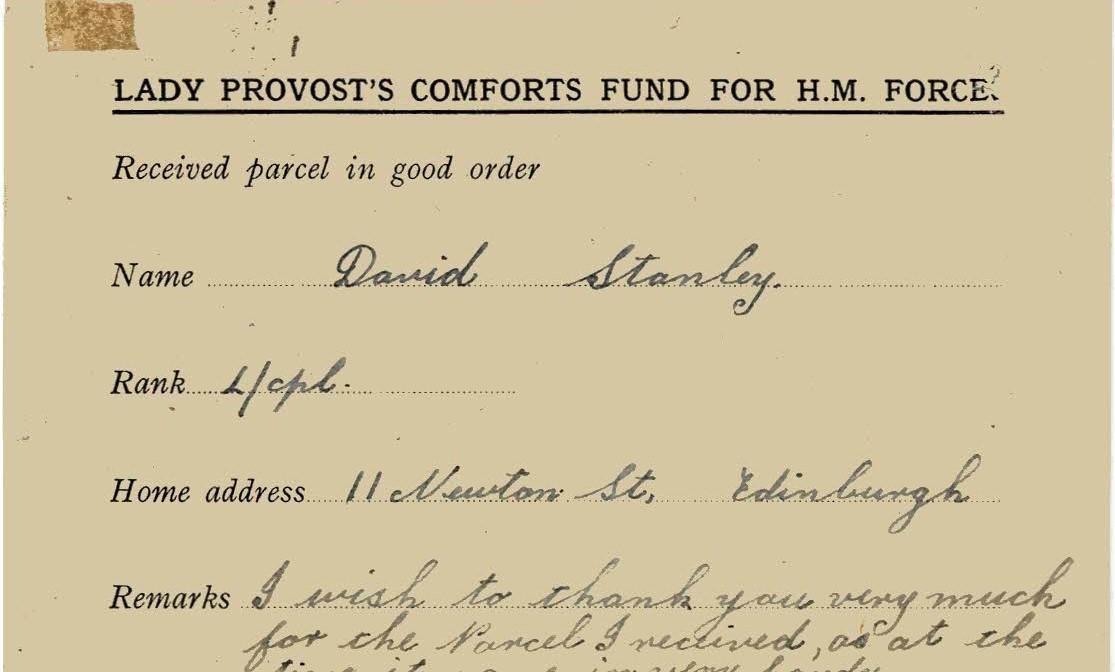 LADY PROVOST'S COMFORTS FUND FOR H.M. FORCE
Received parcel in good order
Name David Stanley.
Rank L/cpl.
Home address 11 Newton St, Edinburgh
Remarks I wish to thank you very much
for the Parcel I received, as at the
time it came in very handy